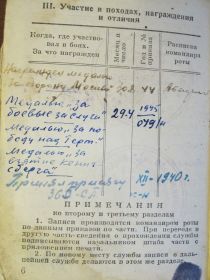 III. Участие в походах, награждения
и отличия
Когда, где участво-
вал в боях.
За что награжден
Месяц и
число
Год и №
приказа
Расписка
командира
роты
Награжден медалью
за оборону Москвы 44
Медалью „за
боевые заслуги" 29.4 1945
079/н
Медалью „за по-
беду над Герм."
Медалью „за
взятие Кениг
сберга"
Принял присягу XII- 1940 г.
ПРИМЕЧАНИЯ
ко второму и третьему разделам
1. Записи производятся командиром роты
по данным приказов по части. При переводе в
другую часть сведения о прохождении службы
подписываются начальником штаба части с
приложением печати.
2. По новому месту службы записи в даль-
нейшей службе делаются в этом же разделе.
6